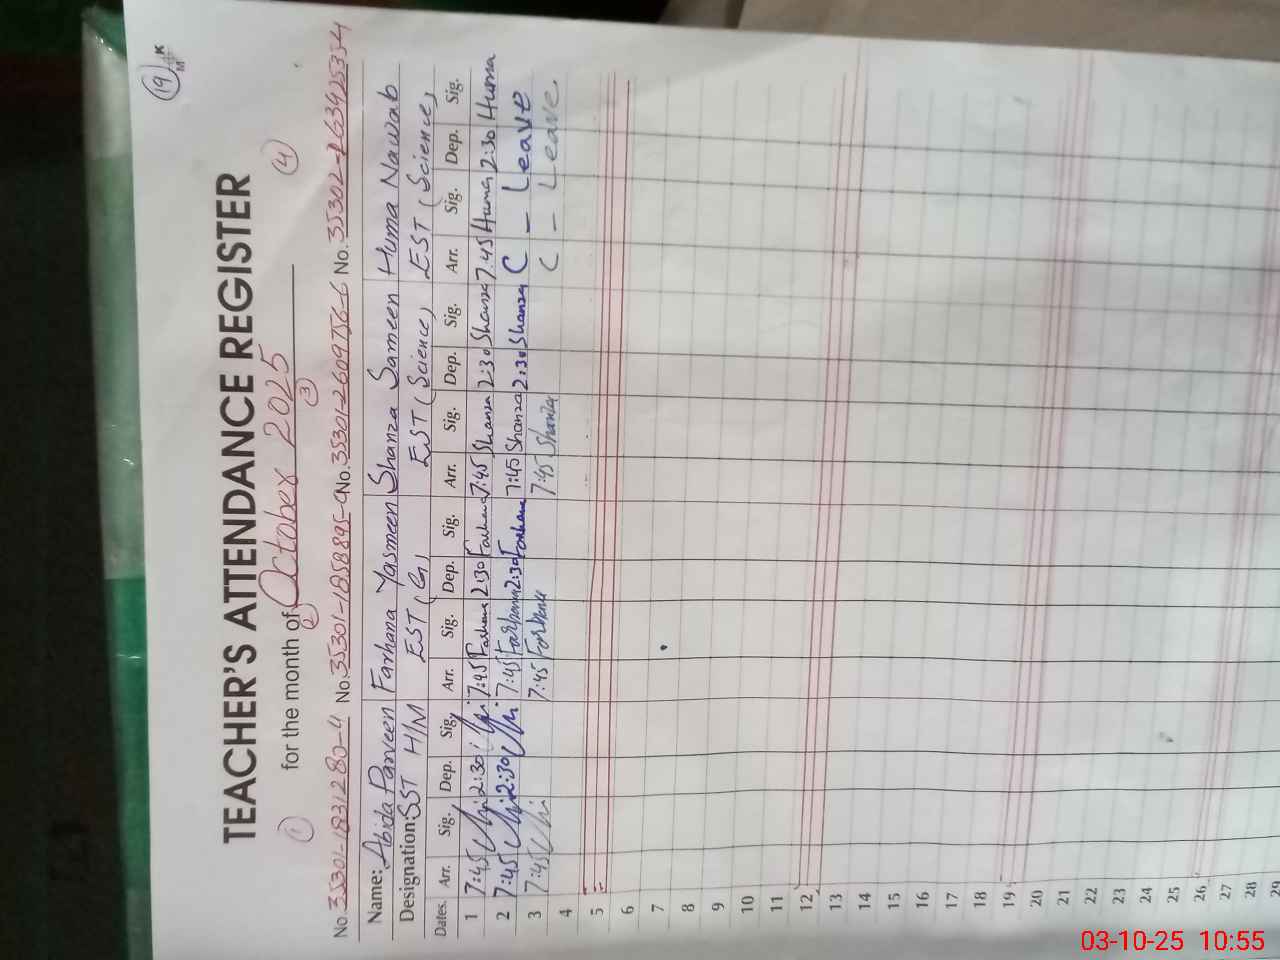 19
K
M
TEACHER'S ATTENDANCE REGISTER
for the month of October 2025
1 2 3 4
No. 35301-1831280-4 No. 35301-1858895- No. 35301-2609756-6 No. 35302-
Name: Abida Parveen Farhana Yasmeen Shanza Sameen Huma Nawab
Designation: SST H/M EST (G) EST (Science) EST (Science)
Dates. Arr. Sig. Dep. Sig. Arr. Sig. Dep. Sig. Arr. Sig. Dep. Sig. Arr. Sig. Dep. Sig.
1 7:45 2:30 7:45 Farhana 2:30 Farhana 7:45 Shanza 2:30 Shanza 7.45 Huma 2:30 Huma
2 7:45 2:30 7:45 Farhana 2:30 Farhana 7:45 Shanza 2:30 Shanza C - Leave
3 7:45 7:45 Farhana 7:45 Shanza C - Leave.
4
5
6
7
8
9
10
11
12
13
14
15
16
17
18
19
20
21
22
23
24
25
26
27
28
29
03-10-25 10:55